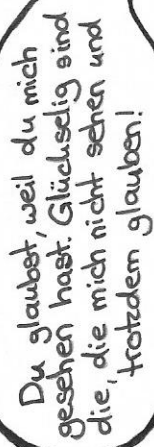 Du glaubst, weil du mich
gesehen hast. Glückselig sind
die, die mich nicht sehen und
trotzdem glauben!